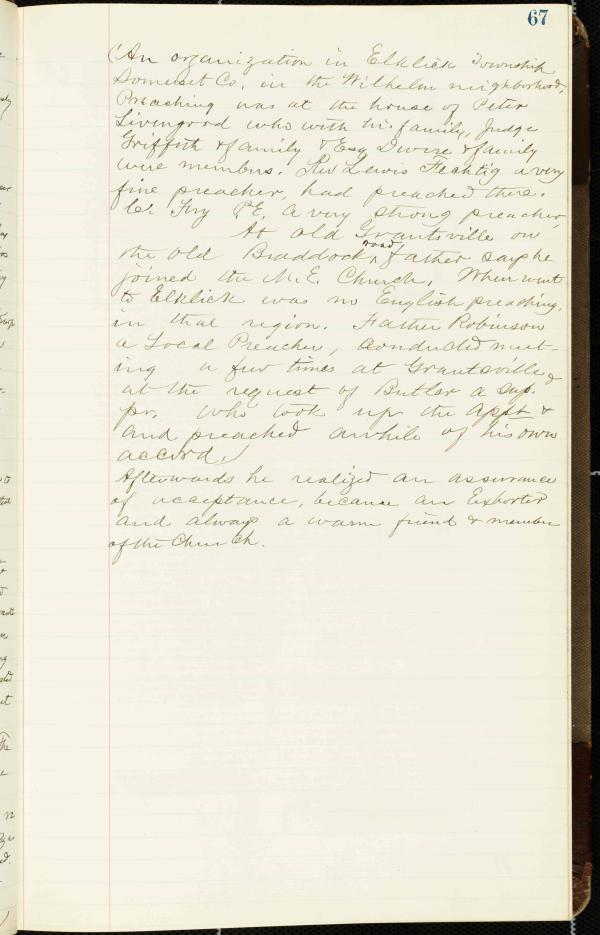 67
(An organization in Elklick Township
Somerset Co. in the Wilhelm neighborhood,
Preaching was at the house of Peter
Livengood who with his family, Judge
Griffith & family & Esq Dwire & family
were members. Rev Lewis Fechtig a very
fine preacher, had preached there.
C. Fry P.E. A very strong preacher,
At old Grantsville on
the old Braddock road, father says he
joined the M.E. Church. When went
to Elklick was no English preaching,
in that region. Father Robinson
a Local Preacher, conducted meet-
ing a few times at Grantsville &
at the request of Butler a sup.
pr. who took up the appt &
and preached awhile of his own
accord.)
Afterwards he realized an assurance
of acceptance, became an Exhorter
and always a warm friend & member
of the Church.